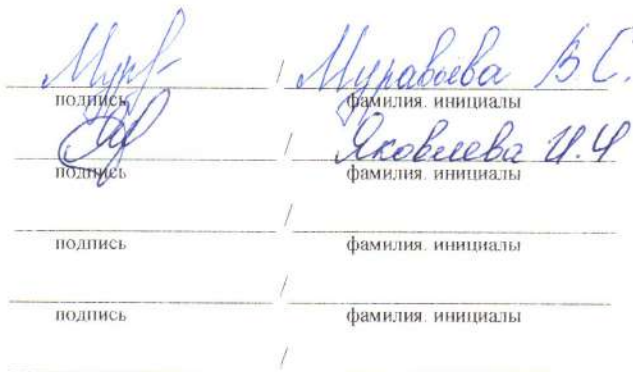 Мурв- / Муравьева В.С.
подпись фамилия. инициалы
/ Яковлева И.И
подпись фамилия. инициалы
/
подпись фамилия. инициалы
/
подпись фамилия. инициалы
/